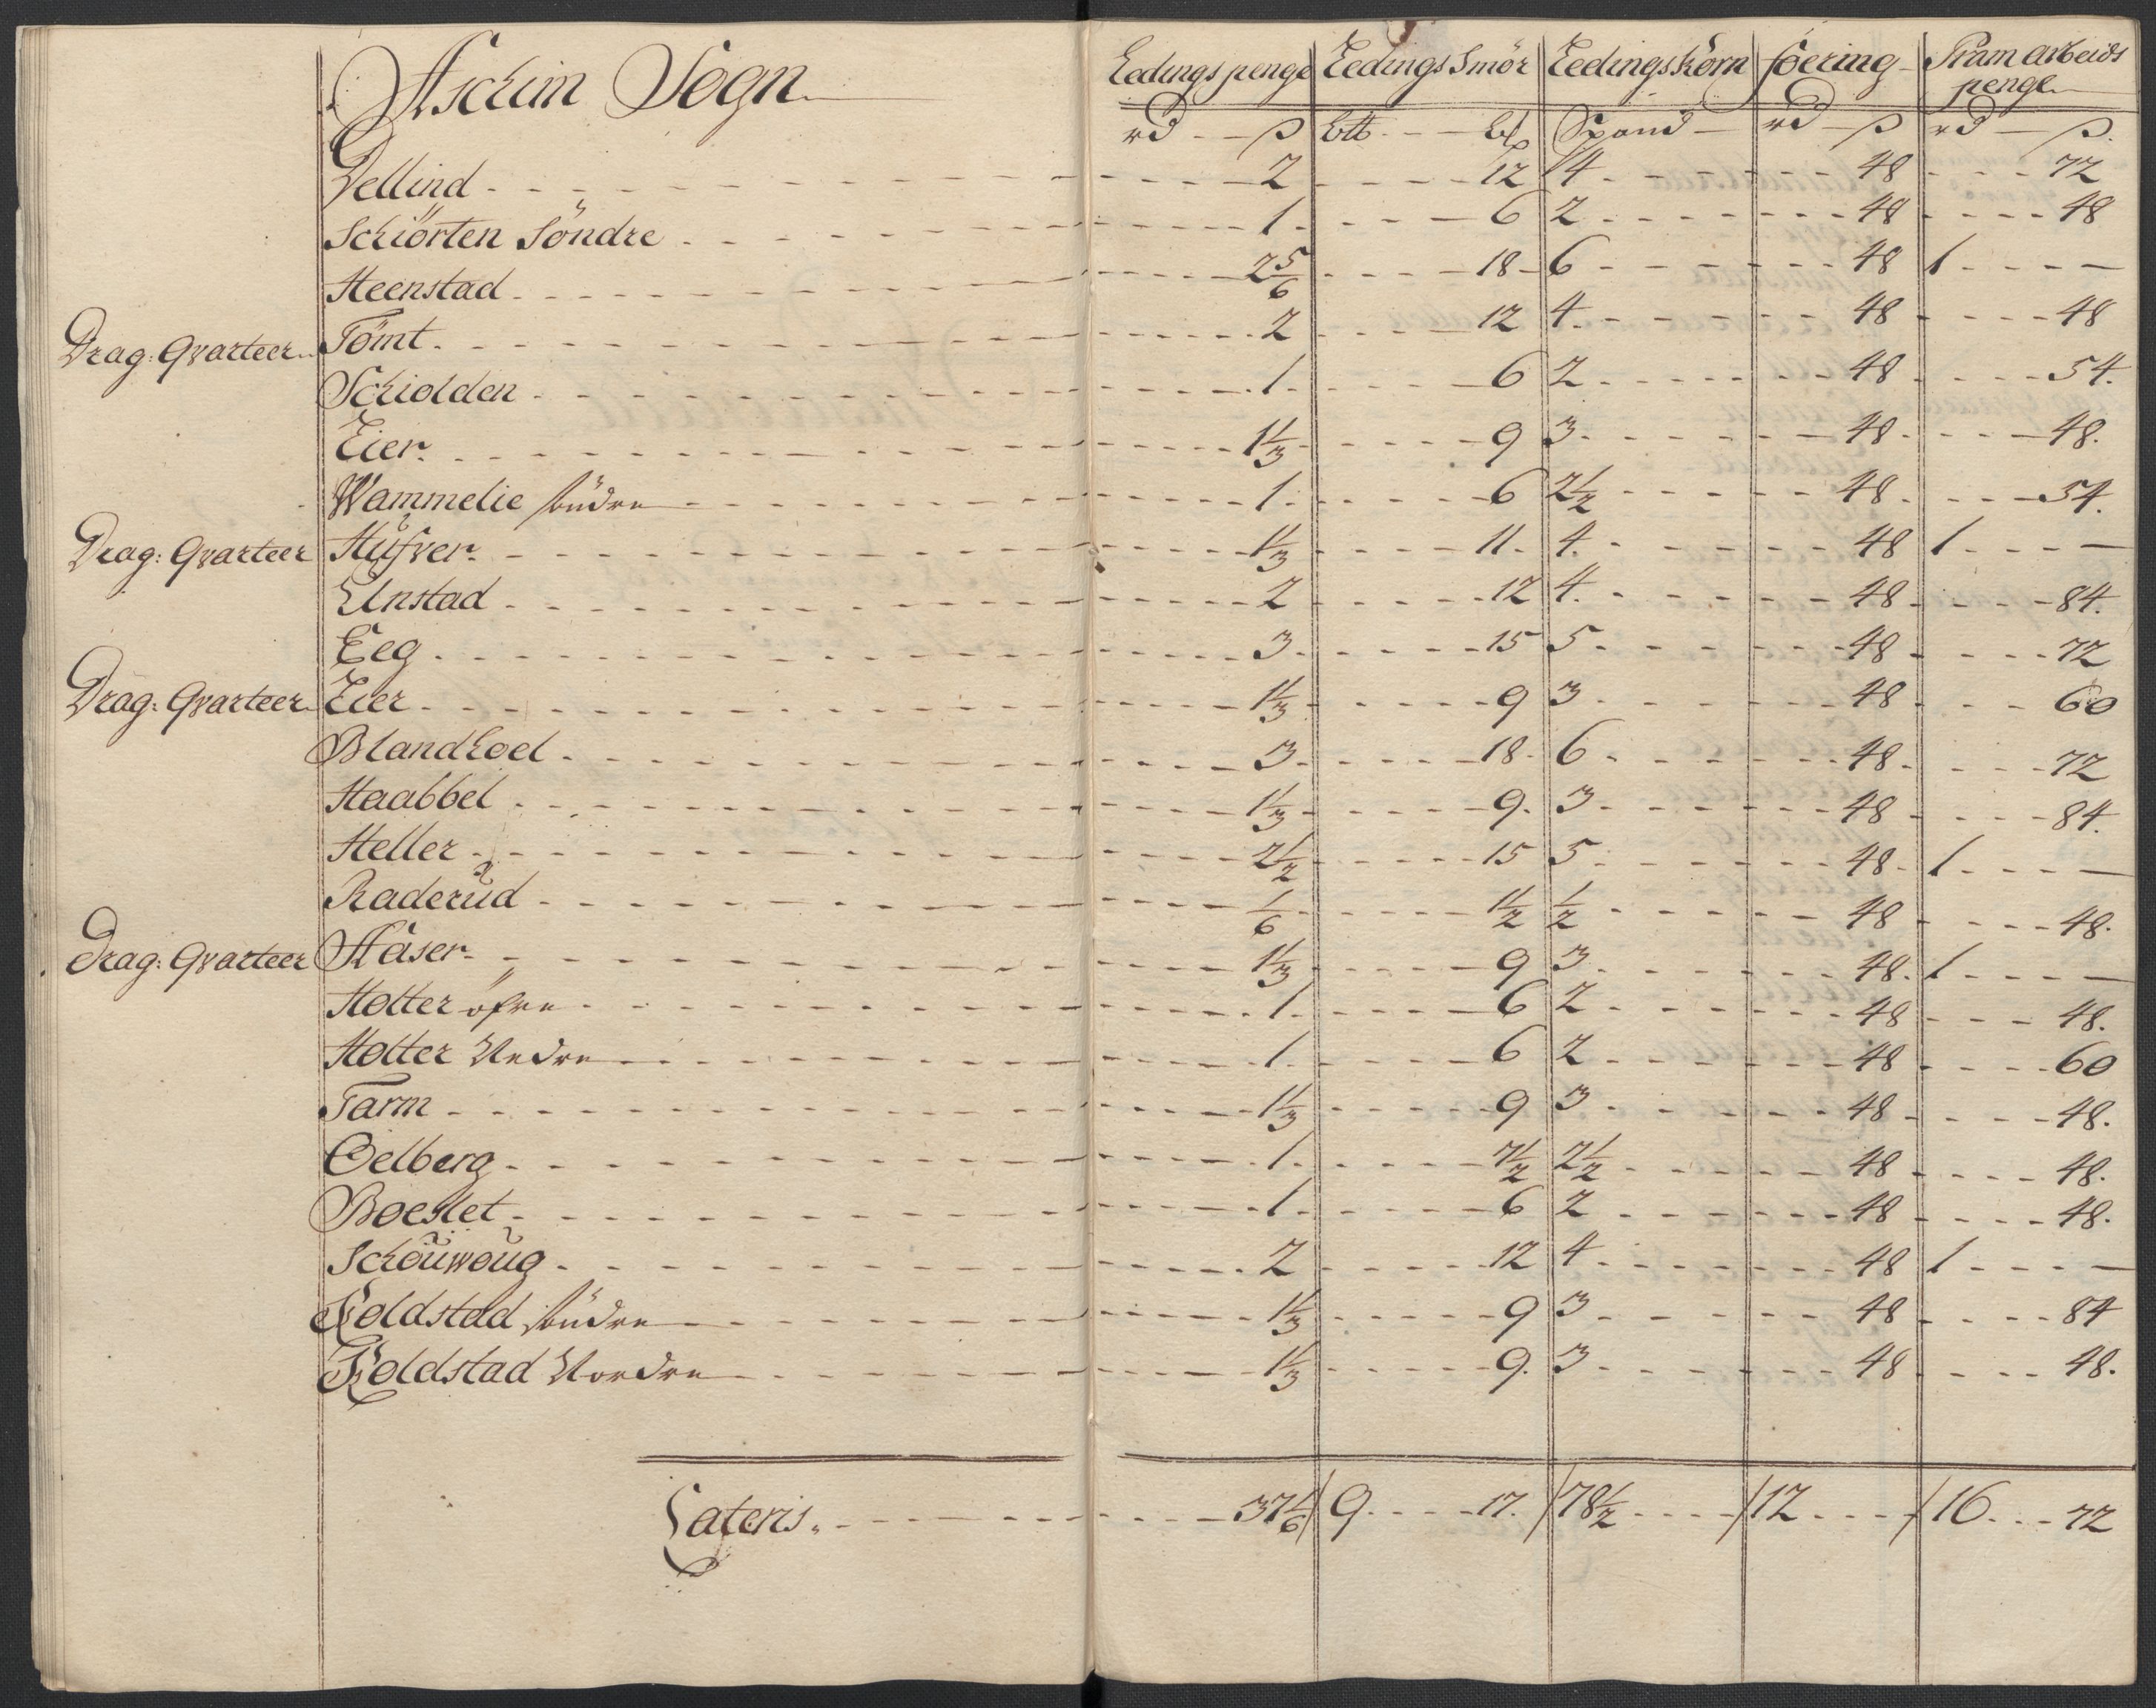 Aschim Sogn Leedings penge Leedings Smör Leedings Korn foering Pram arbeids
penge
rd ß btt bß Spand rd ß rd ß
Vellind 2 12 4 48 72
Schiörten Söndre 1 6 2 48 48
Heenstad 2 5/6 18 6 48 1 —
Drag: Qvarteer Tömt 2 12 4 48 48
Schiolden 1 6 2 48 54
Eier 1 1/3 9 3 48 48
Wammelie sündre 1 6 2 1/2 48 54
Drag: Qvarteer Hüfver 1 1/3 11 4 48 1 —
Unstad 2 12 4 48 84
Eeg 3 15 5 48 72
Drag: Qvarteer Eier 1 1/3 9 3 48 60
Blandhoel 3 18 6 48 72
Haabbel 1 1/3 9 3 48 84
Heller 2 1/2 15 5 48 1 —
Raderud 1/6 1 1/2 1/2 48 48
Drag: Qvarteer Haser 1 1/3 9 3 48 1 —
Holter öfre 1 6 2 48 48
Holter Nedre 1 6 2 48 60
Farm 1 1/3 9 3 48 48
Oelberg 1 7 1/2 2 1/2 48 48
Boeslet 1 6 2 48 48
Schouwoug 2 12 4 48 1 —
Koldstad sündre 1 1/3 9 3 48 84
Koldstad Nordre 1 1/3 9 3 48 48
Lateris 37 1/6 9 17 78 1/2 12 16 72